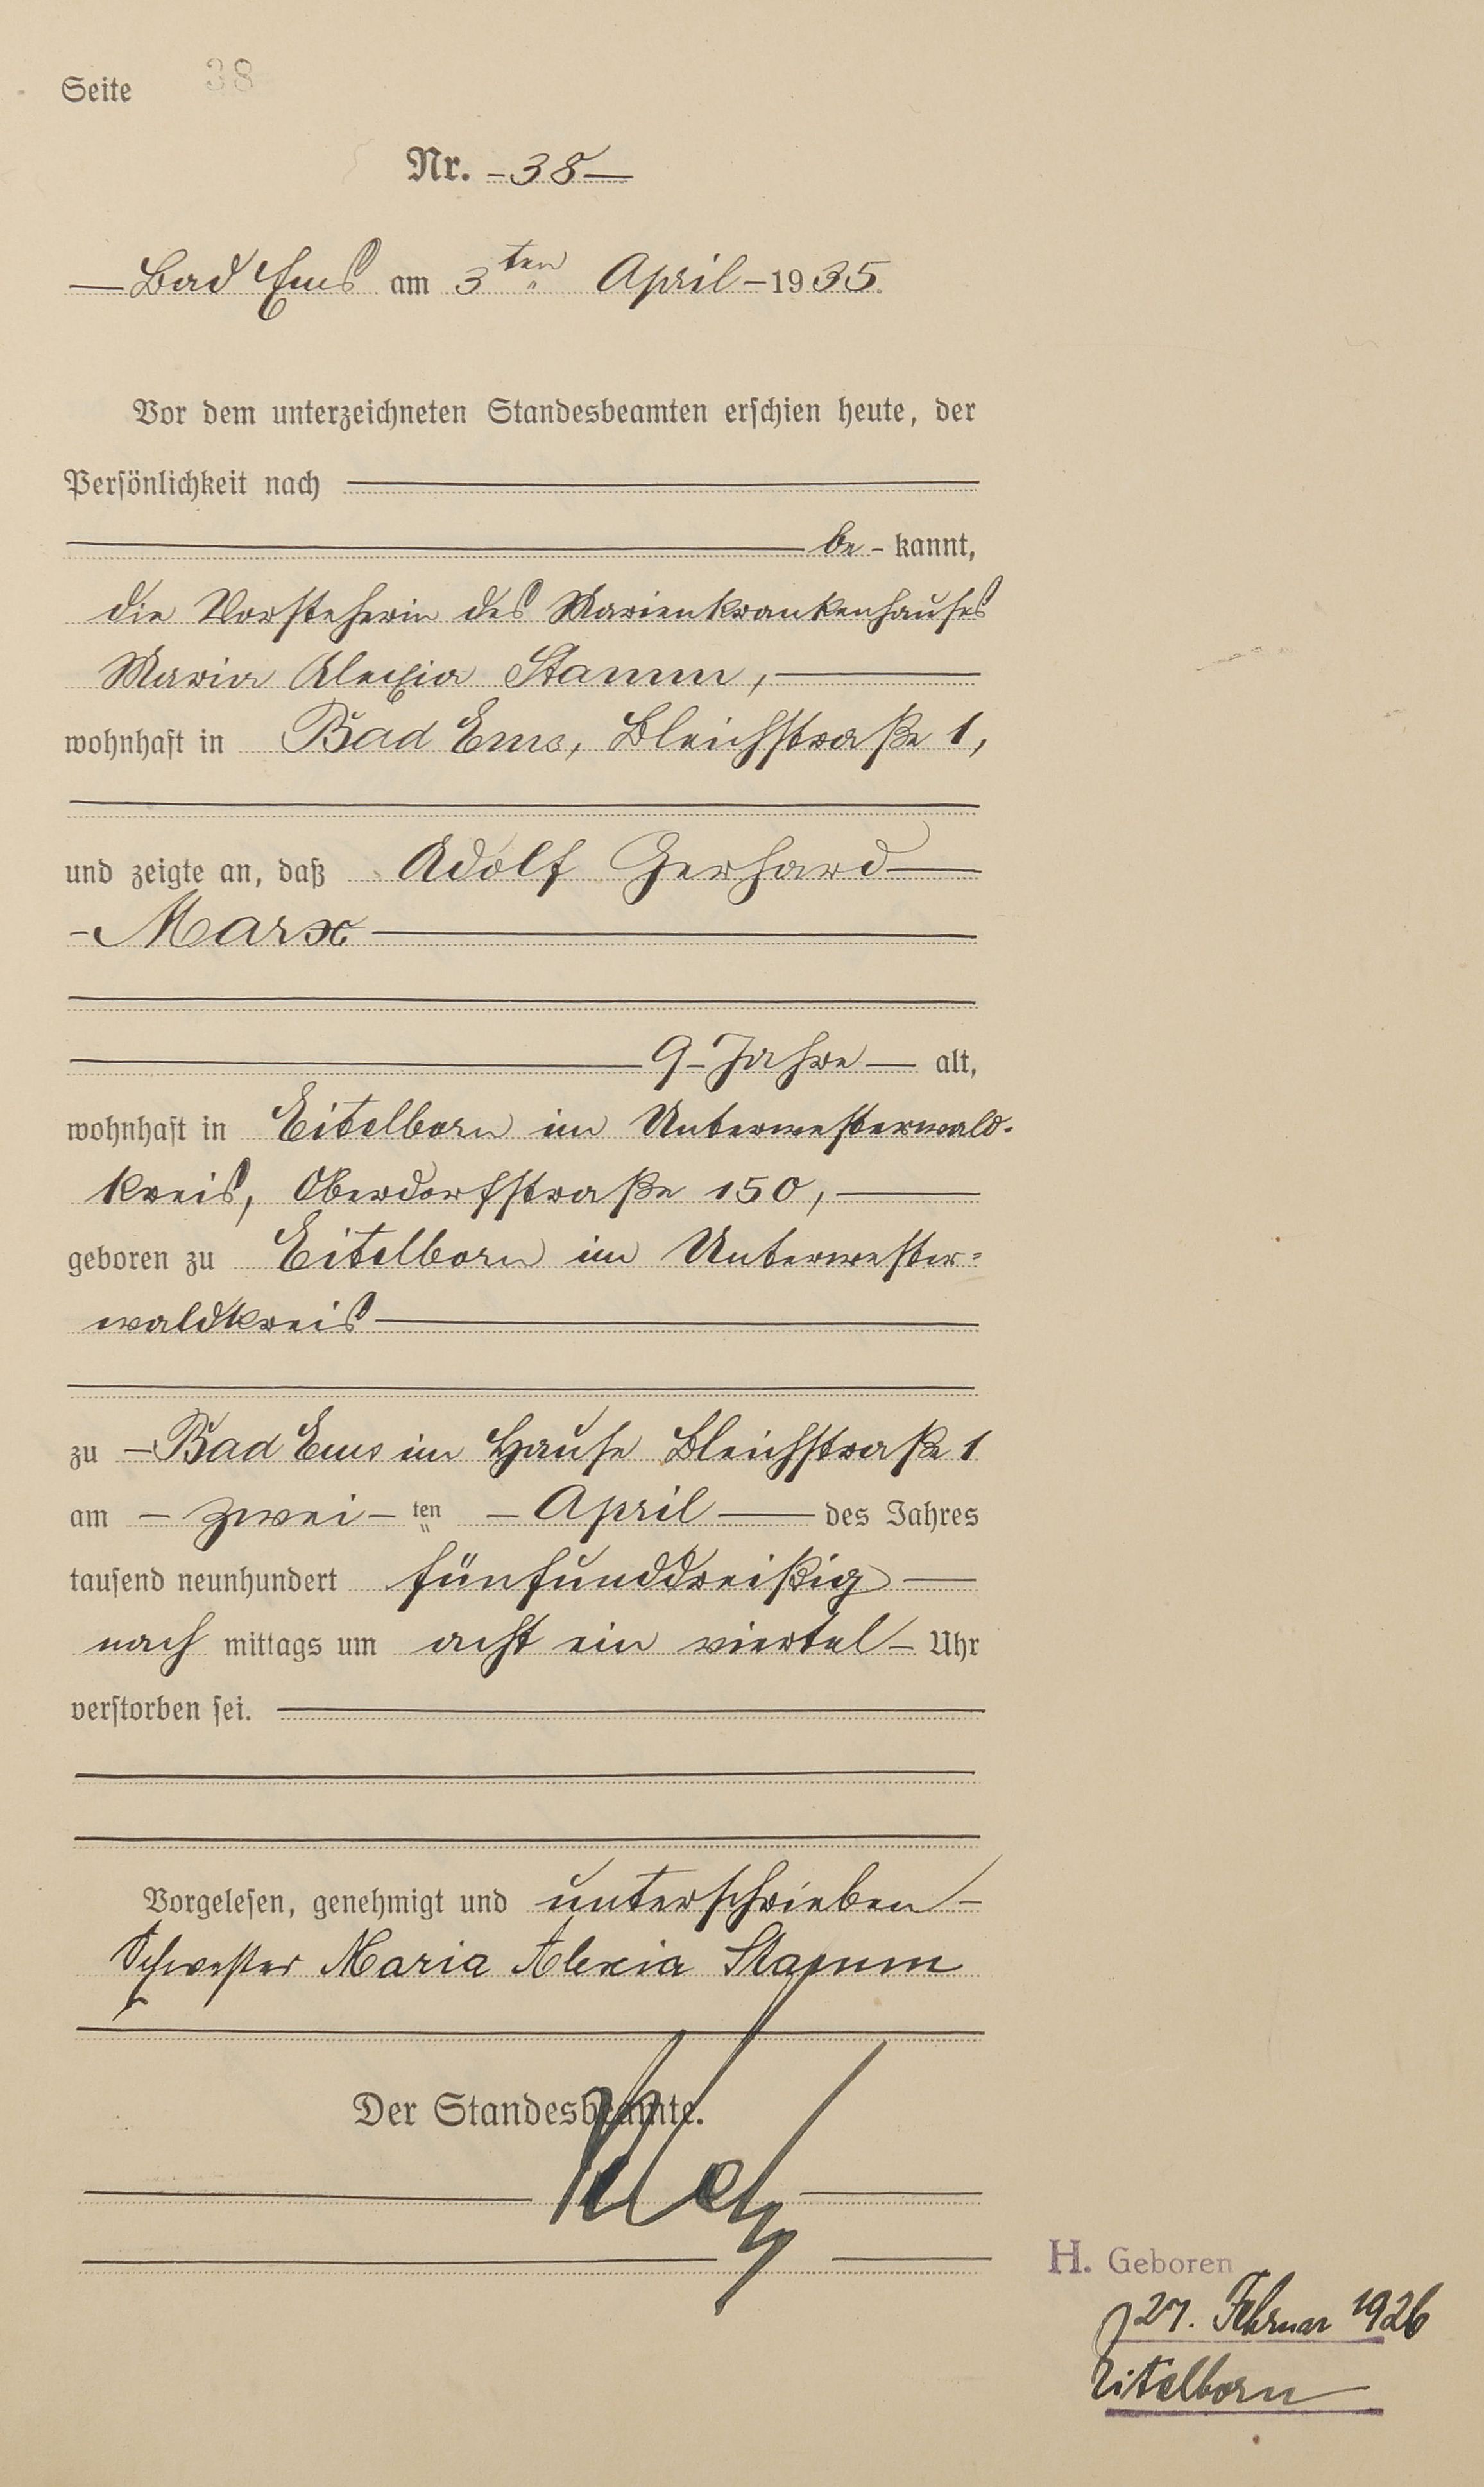 Seite 38
Nr. -38-
- Bad Ems am 3ten April - 1935.
Vor dem unterzeichneten Standesbeamten erschien heute, der
Persönlichkeit nach
be - kannt,
die Vorsteherin des Marienkrankenhauses
Maria Alexia Stamm,
wohnhaft in Bad Ems, Bleichstraße 1,
und zeigte an, daß Adolf Gerhard
- Marx
9 - Jahre - alt,
wohnhaft in Eitelborn im Unterwesterwald-
kreis, Oberdorfstraße 150,
geboren zu Eitelborn im Unterwester=
waldkreis
zu - Bad Ems im Hause Bleichstraße 1
am - zwei - ten - April - des Jahres
tausend neunhundert fünfunddreißig
nach mittags um acht ein viertel - Uhr
verstorben sei.
Vorgelesen, genehmigt und unterschrieben -
Schwester Maria Alexia Stamm
Der Standesbeamte.
H. Geboren
27. Februar 1926
Eitelborn